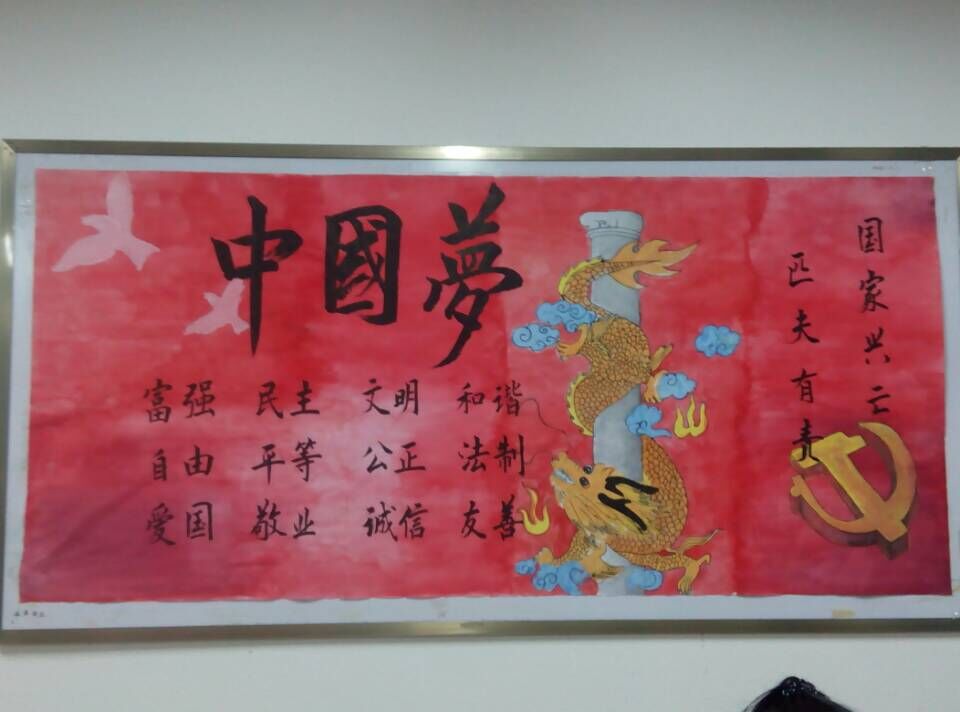 中國夢
富强 民主 文明 和谐
自由 平等 公正 法制
爱国 敬业 诚信 友善
国家兴亡
匹夫有责